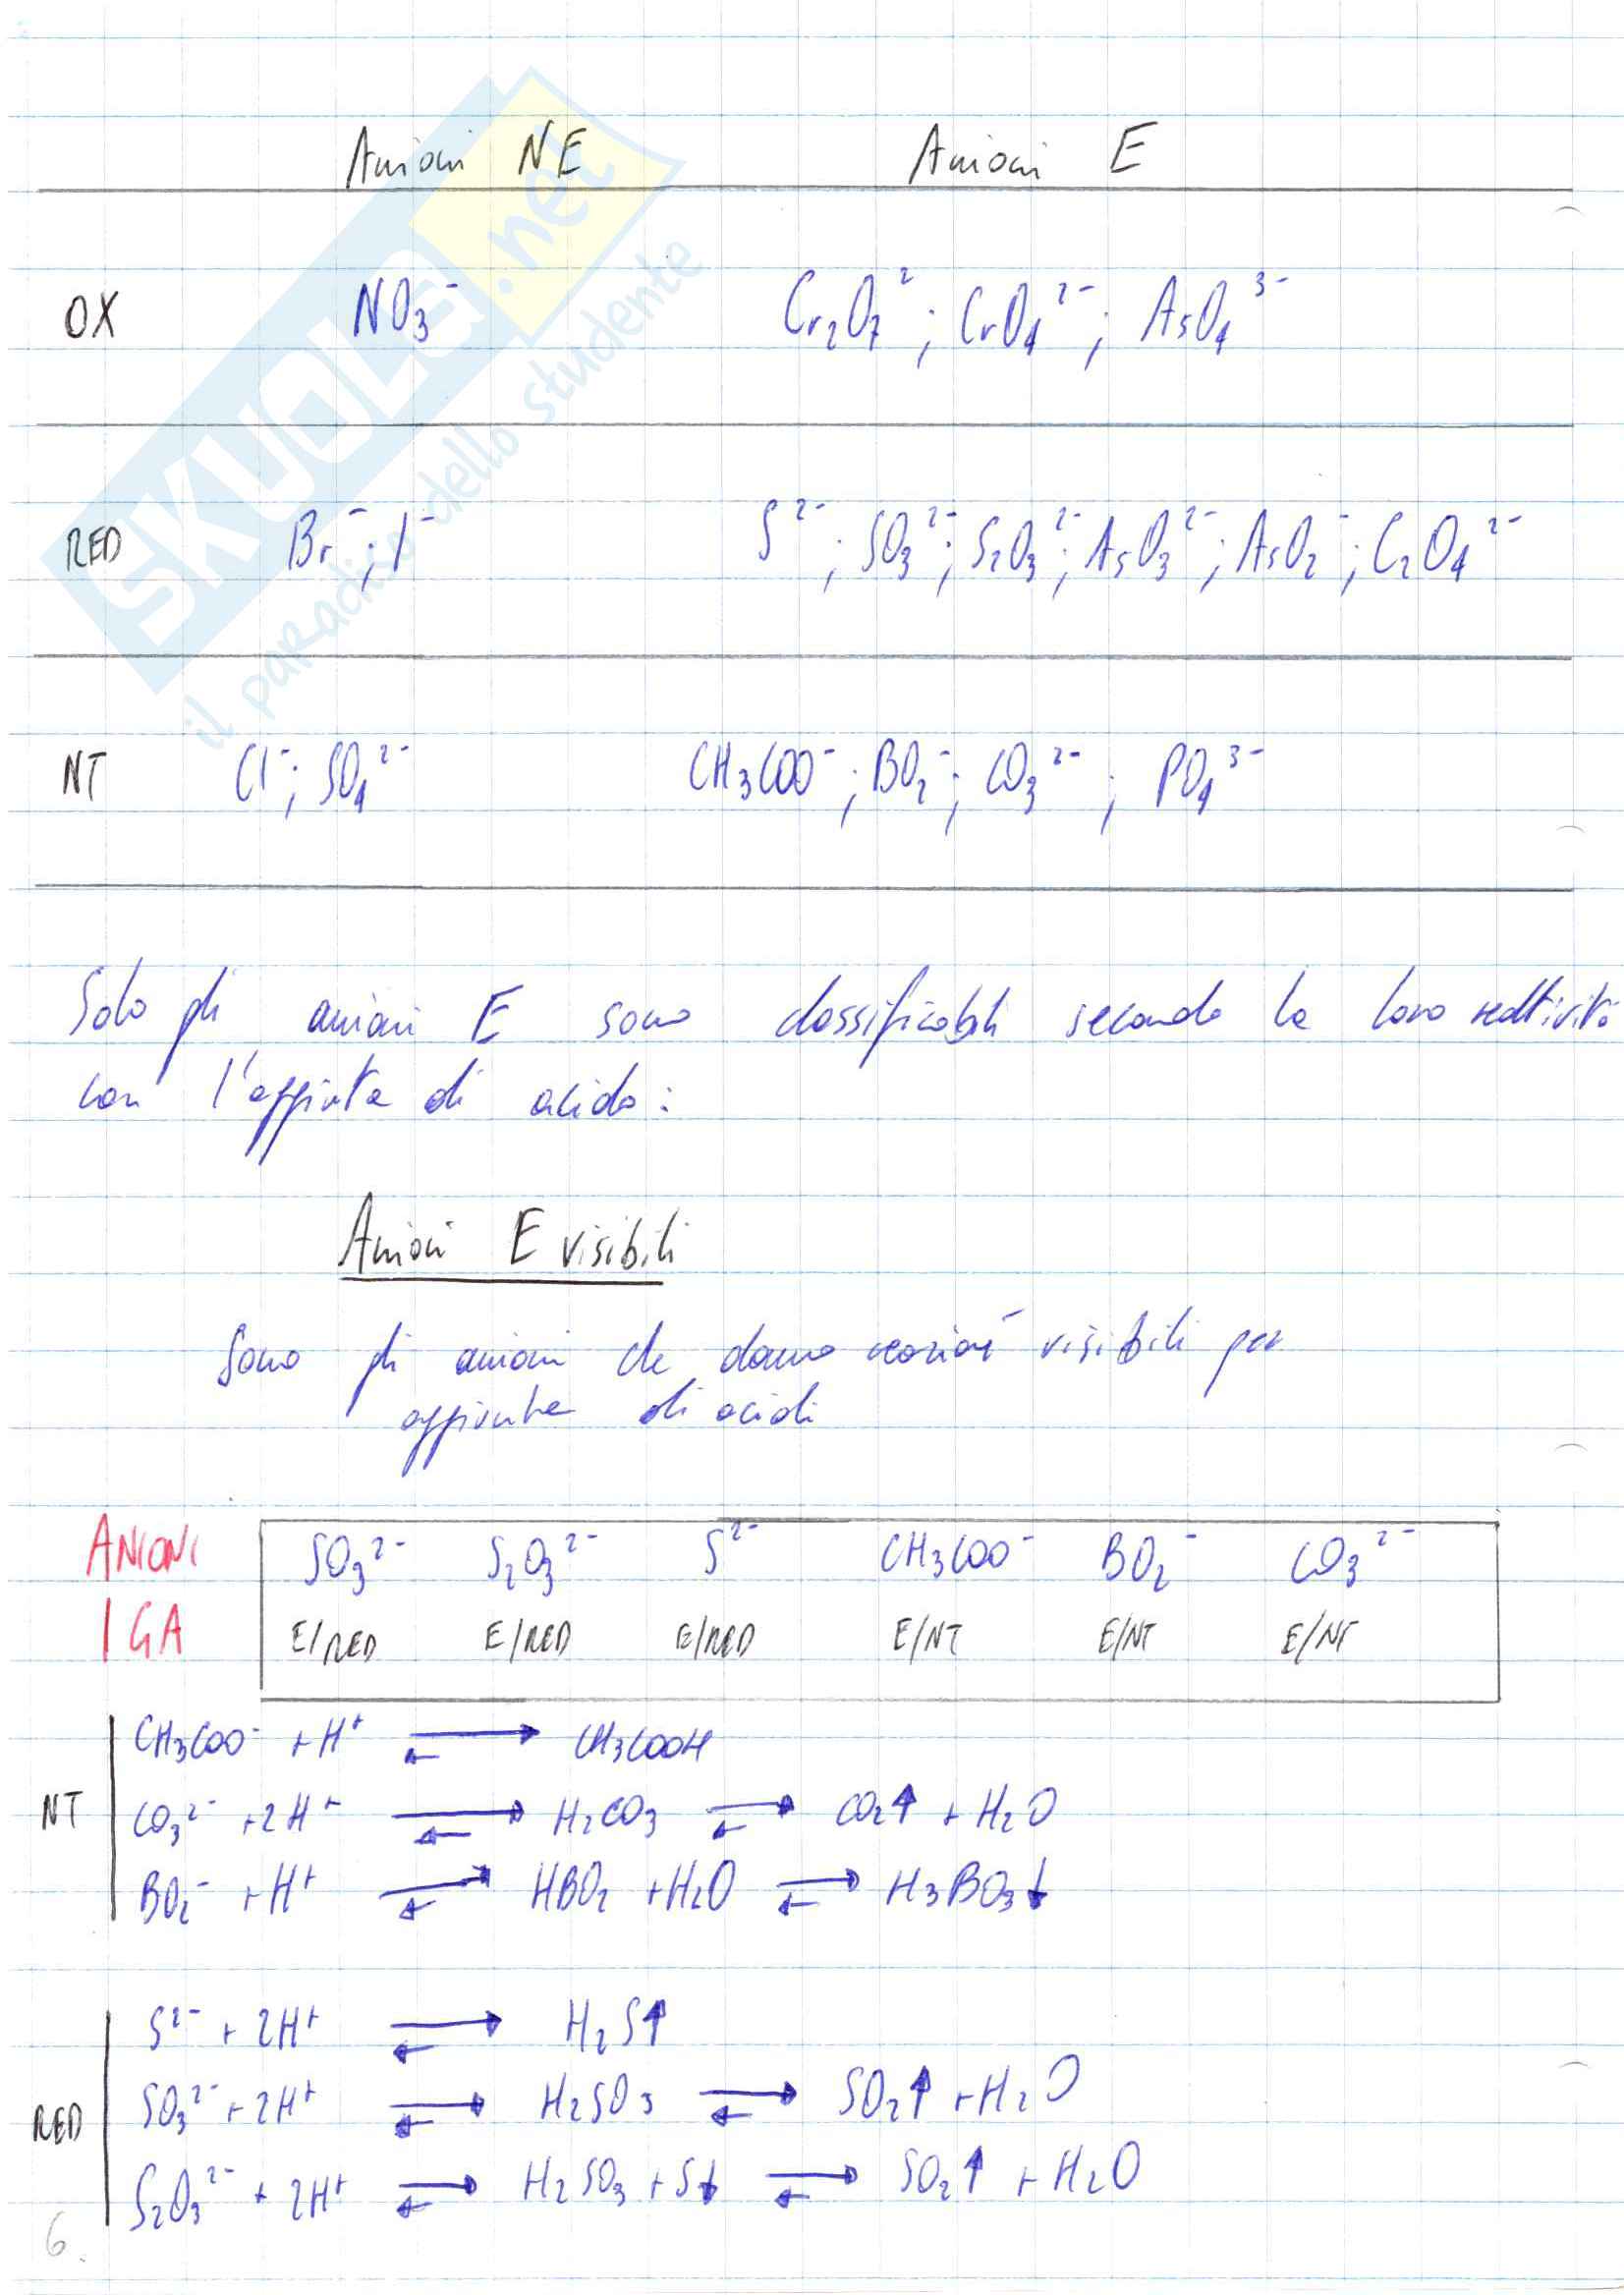 Anioni NE Anioni E
OX NO₃⁻ Cr₂O₇²; CrO₄²⁻; AsO₄³⁻
RED Br⁻; I⁻ S²⁻; SO₃²⁻; S₂O₃²⁻; AsO₃²⁻; AsO₂⁻; C₂O₄²⁻
NT Cl⁻; SO₄²⁻ CH₃COO⁻; BO₂⁻; CO₃²⁻; PO₄³⁻
Solo gli anioni E sono classificabili secondo la loro reattività
con l'aggiunta di acido:
Anioni E visibili
Sono gli anioni che danno reazioni visibili per
aggiunta di acidi
ANIONI SO₃²⁻ S₂O₃²⁻ S²⁻ CH₃COO⁻ BO₂⁻ CO₃²⁻
I GA E/RED E/RED E/RED E/NT E/NT E/NT
CH₃COO⁻ + H⁺ ⇄ CH₃COOH
NT CO₃²⁻ + 2H⁺ ⇄ H₂CO₃ ⇄ CO₂↑ + H₂O
BO₂⁻ + H⁺ ⇄ HBO₂ + H₂O ⇄ H₃BO₃↓
S²⁻ + 2H⁺ ⇄ H₂S↑
RED SO₃²⁻ + 2H⁺ ⇄ H₂SO₃ ⇄ SO₂↑ + H₂O
S₂O₃²⁻ + 2H⁺ ⇄ H₂SO₃ + S↓ ⇄ SO₂↑ + H₂O
6.
SKUOLA.net
il paradiso dello studente